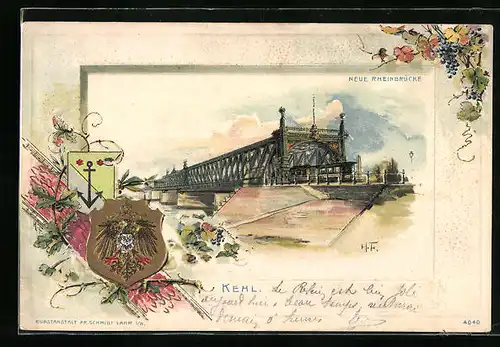 NEUE RHEINBRÜCKE
H.F.
KEHL. Le Rhin est bien joli
aujourd'hui, beau temps,
demain
KUNSTANSTALT FR. SCHMIDT LAHR i/B.
4840